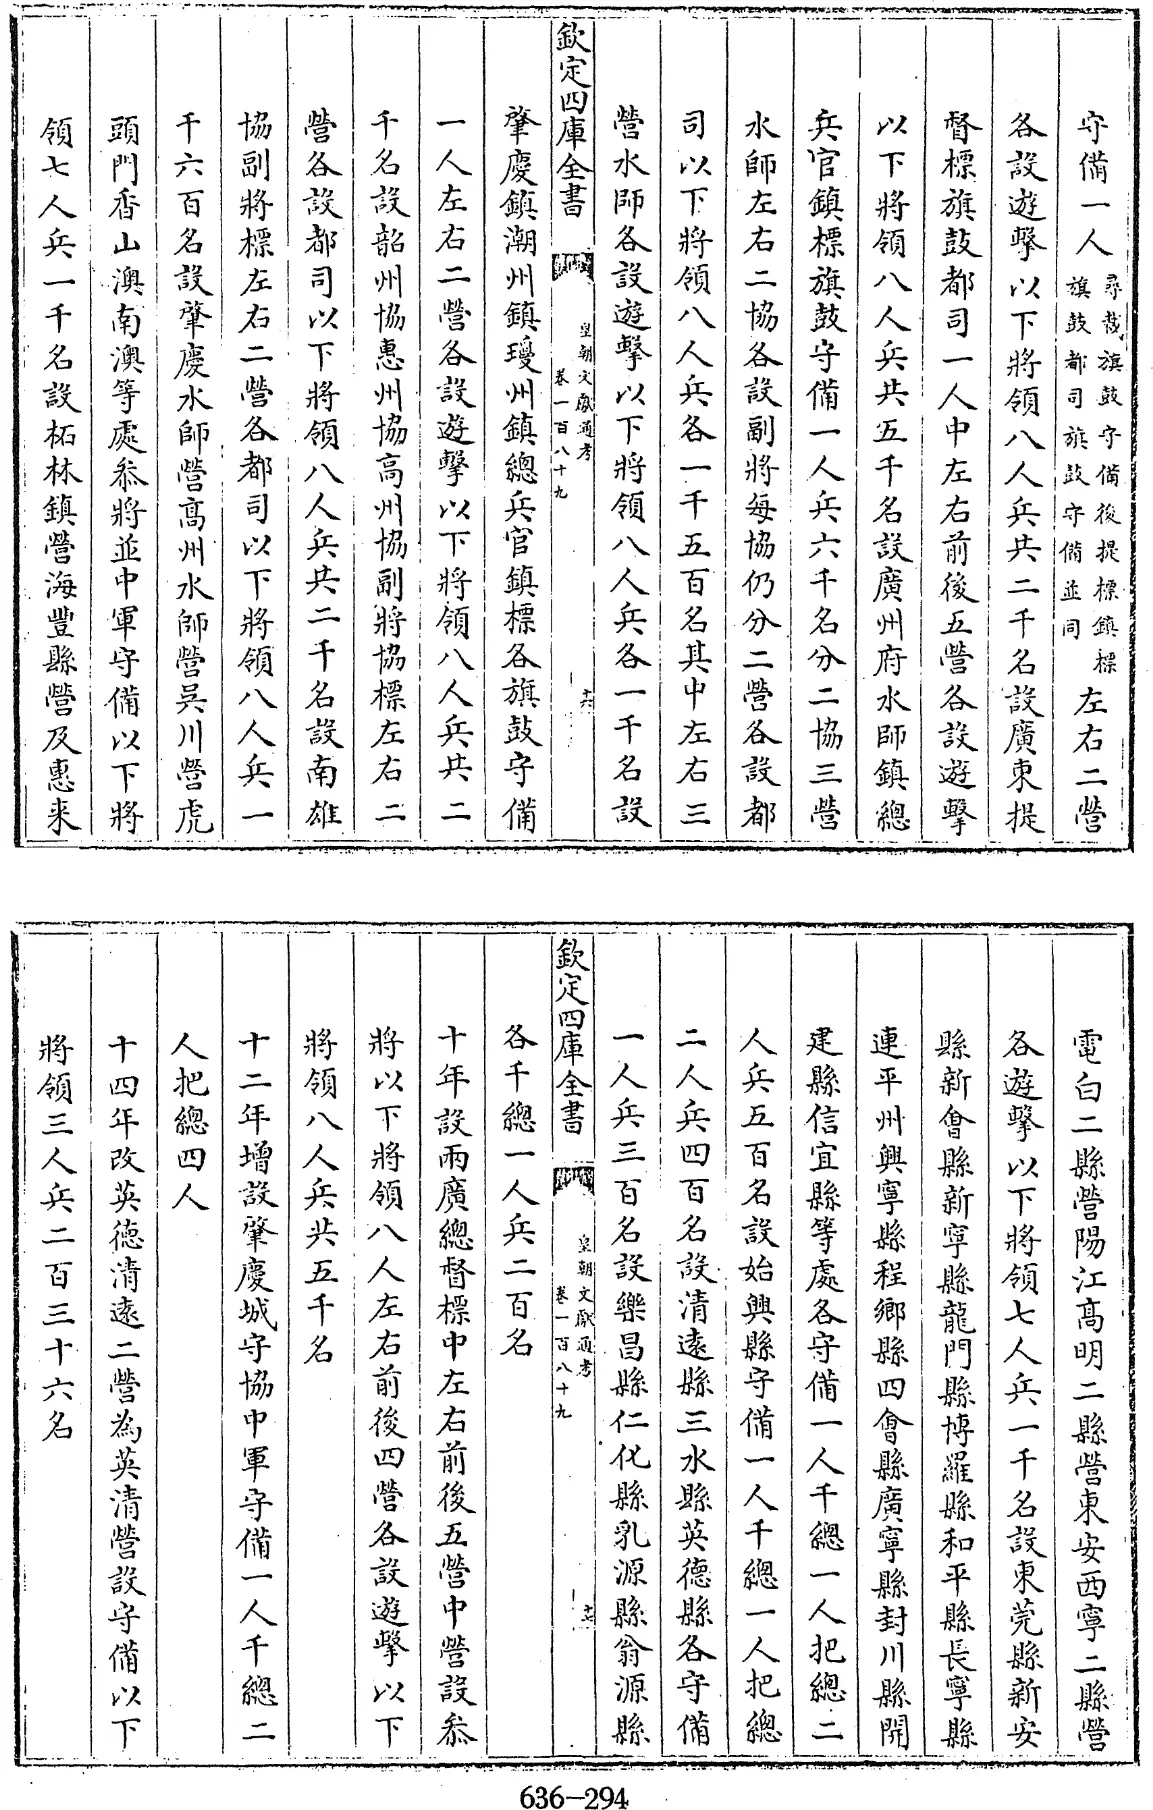 守備一人尋裁旗鼓守備後提標鎮標旗鼓都司旗鼓守備並同左右二營
各設遊擊以下將領八人兵共二千名設廣東提
督標旗鼓都司一人中左右前後五營各設遊擊
以下將領八人兵共五千名設廣州府水師鎮總
兵官鎮標旗鼓守備一人兵六千名分二協三營
水師左右二協各設副將每協仍分二營各設都
司以下將領八人兵各一千五百名其中左右三
營水師各設遊擊以下將領八人兵各一千名設
欽定四庫全書
皇朝文獻通考
卷一百八十九
十六
肇慶鎮潮州鎮瓊州鎮總兵官鎮標各旗鼓守備
一人左右二營各設遊擊以下將領八人兵共二
千名設韶州協惠州協高州協副將協標左右二
營各設都司以下將領八人兵共二千名設南雄
協副將標左右二營各都司以下將領八人兵一
千六百名設肇慶水師營高州水師營吳川營虎
頭門香山澳南澳等處叅將並中軍守備以下將
領七人兵一千名設柘林鎮營海豐縣營及惠来
電白二縣營陽江高明二縣營東安西寧二縣營
各遊擊以下將領七人兵一千名設東莞縣新安
縣新會縣新寧縣龍門縣博羅縣和平縣長寧縣
連平州興寧縣程鄉縣四會縣廣寧縣封川縣開
建縣信宜縣等處各守備一人千總一人把總二
人兵五百名設始興縣守備一人千總一人把總
二人兵四百名設清遠縣三水縣英德縣各守備
一人兵三百名設樂昌縣仁化縣乳源縣翁源縣
欽定四庫全書
皇朝文獻通考
卷一百八十九
各千總一人兵二百名
十年設兩廣總督標中左右前後五營中營設叅
將以下將領八人左右前後四營各設遊擊以下
將領八人兵共五千名
十二年增設肇慶城守協中軍守備一人千總二
人把總四人
十四年改英德清遠二營為英清營設守備以下
將領三人兵二百三十六名
636-294